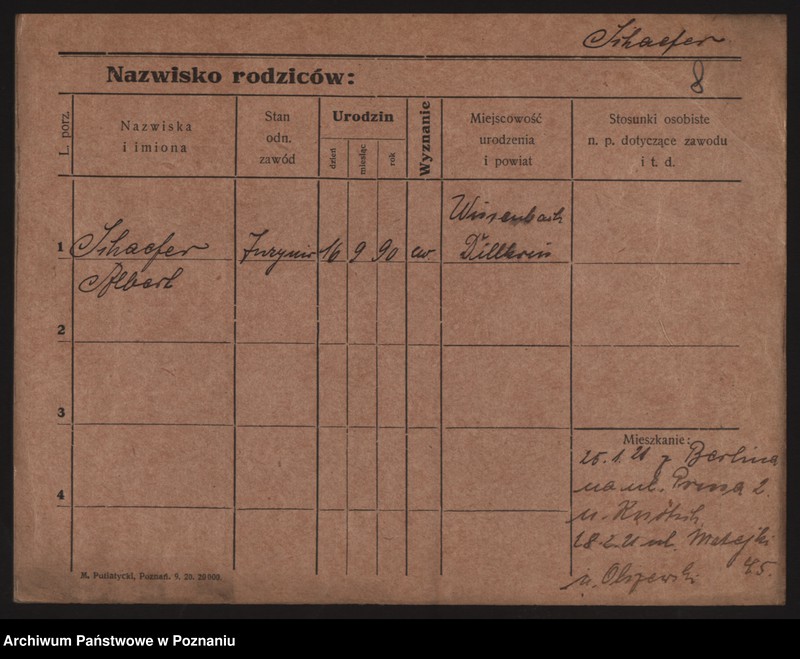 Schaefer
8
Nazwisko rodziców:
L. porz.
Nazwiska
i imiona
Stan
odn.
zawód
Urodzin
dzień
miesiąc
rok
Wyznanie
Miejscowość
urodzenia
i powiat
Stosunki osobiste
n. p. dotyczące zawodu
i t. d.
1
Schaefer
Albert
16
9
90
ew
Wissenbach
Dillkreis
2
3
4
Mieszkanie:
25. 1. 21 z Berlina
na ul. Prusa 2.
u.
28. 2. 21 ul. Matejki
45.
u. Olszewski
M. Putiatycki, Poznań. 9. 20. 20 000.
Archiwum Państwowe w Poznaniu